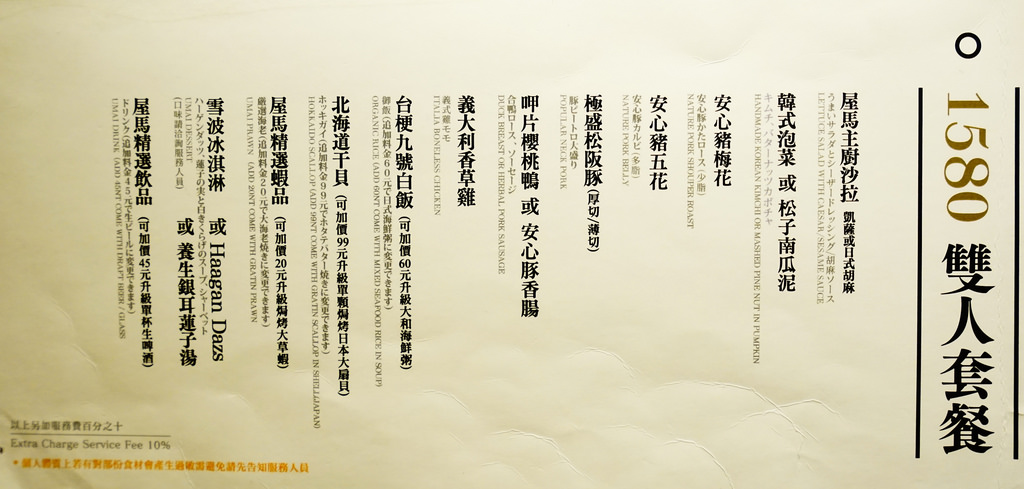 1580 雙人套餐
屋馬主廚沙拉 凱薩或日式胡麻
うまいサラダとシーザードレッシング/胡麻ソース
LETTUCE SALAD WITH CAESAR/SESAME SAUCE
韓式泡菜 或 松子南瓜泥
キムチ、バターナッツカボチャ
HANDMADE KOREAN KIMCHI OR MASHED PINE NUT IN PUMPKIN
安心豬梅花
安心豚かたロース(少脂)
NATURE PORK SHOUPER ROAST
安心豬五花
安心豚カルビ(多脂)
NATURE PORK BELLY
極盛松阪豚(厚切/薄切)
豚トロ大盛り
POPULAR NECK PORK
呷片櫻桃鴨 或 安心豚香腸
合鴨ロース、ソーセージ
DUCK BREAST OR HERBAL PORK SAUSAGE
義大利香草雞
義式雞モモ
ITALIA BONELESS CHICKEN
台梗九號白飯(可加價60元升級大和海鮮粥)
御飯(追加料金60元で日式海鮮粥に変更できます)
ORGANIC RICE (ADD 60NT COME WITH MIXED SEAFOOD RICE IN SOUP)
北海道干貝(可加價99元升級單顆焗烤日本大扇貝)
ホッキガイ(追加料金99元でホタテバター焼きに変更できます)
HOKKAIDO SCALLOP (ADD 99NT COME WITH GRATIN SCALLOP IN SHELL(JAPAN)
屋馬精選蝦品(可加價20元升級焗烤大草蝦)
厳選海老(追加料金20元で大海老焼きに変更できます)
UMAI PRAWN (ADD 20NT COME WITH GRATIN PRAWN
雪波冰淇淋 或 Haagan Dazs
或 養生銀耳蓮子湯
ハーゲンダッツ、蓮子の実と白きくらげのスープ、シャーベット
UMAI DESSERT
(口味請洽詢服務人員)
屋馬精選飲品(可加價45元升級單杯生啤酒)
ドリンク(追加料金45元で生ビールに変更できます)
UMAI DRINK (ADD 45NT COME WITH DRAFT BEER / GLASS
以上另加服務費百分之十
Extra Charge Service Fee 10%
*個人體質上若有對部份食材會產生過敏需避免請先告知服務人員